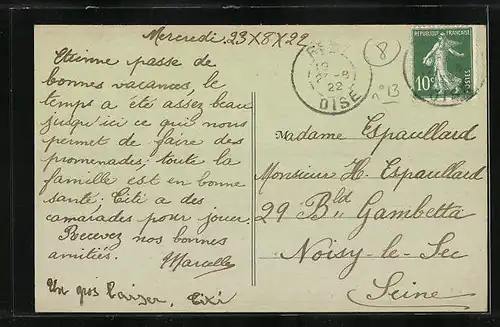 Mercredi 23X8X22
Etienne passe de
bonnes vacances, le
temps a été assez beau
jusqu'ici ce qui nous
permet de faire des
promenades; toute la
famille est en bonne
santé; Titi a des
camarades pour jouer.
Recevez nos bonnes
amitiés.
Marcelle
Un gros baiser, Titi
OISE
22
8
n° 13
REPUBLIQUE FRANÇAISE
10c
POSTES
Madame Espaullard
Monsieur H. Espaullard
29 Bld Gambetta
Noisy-le-Sec
Seine